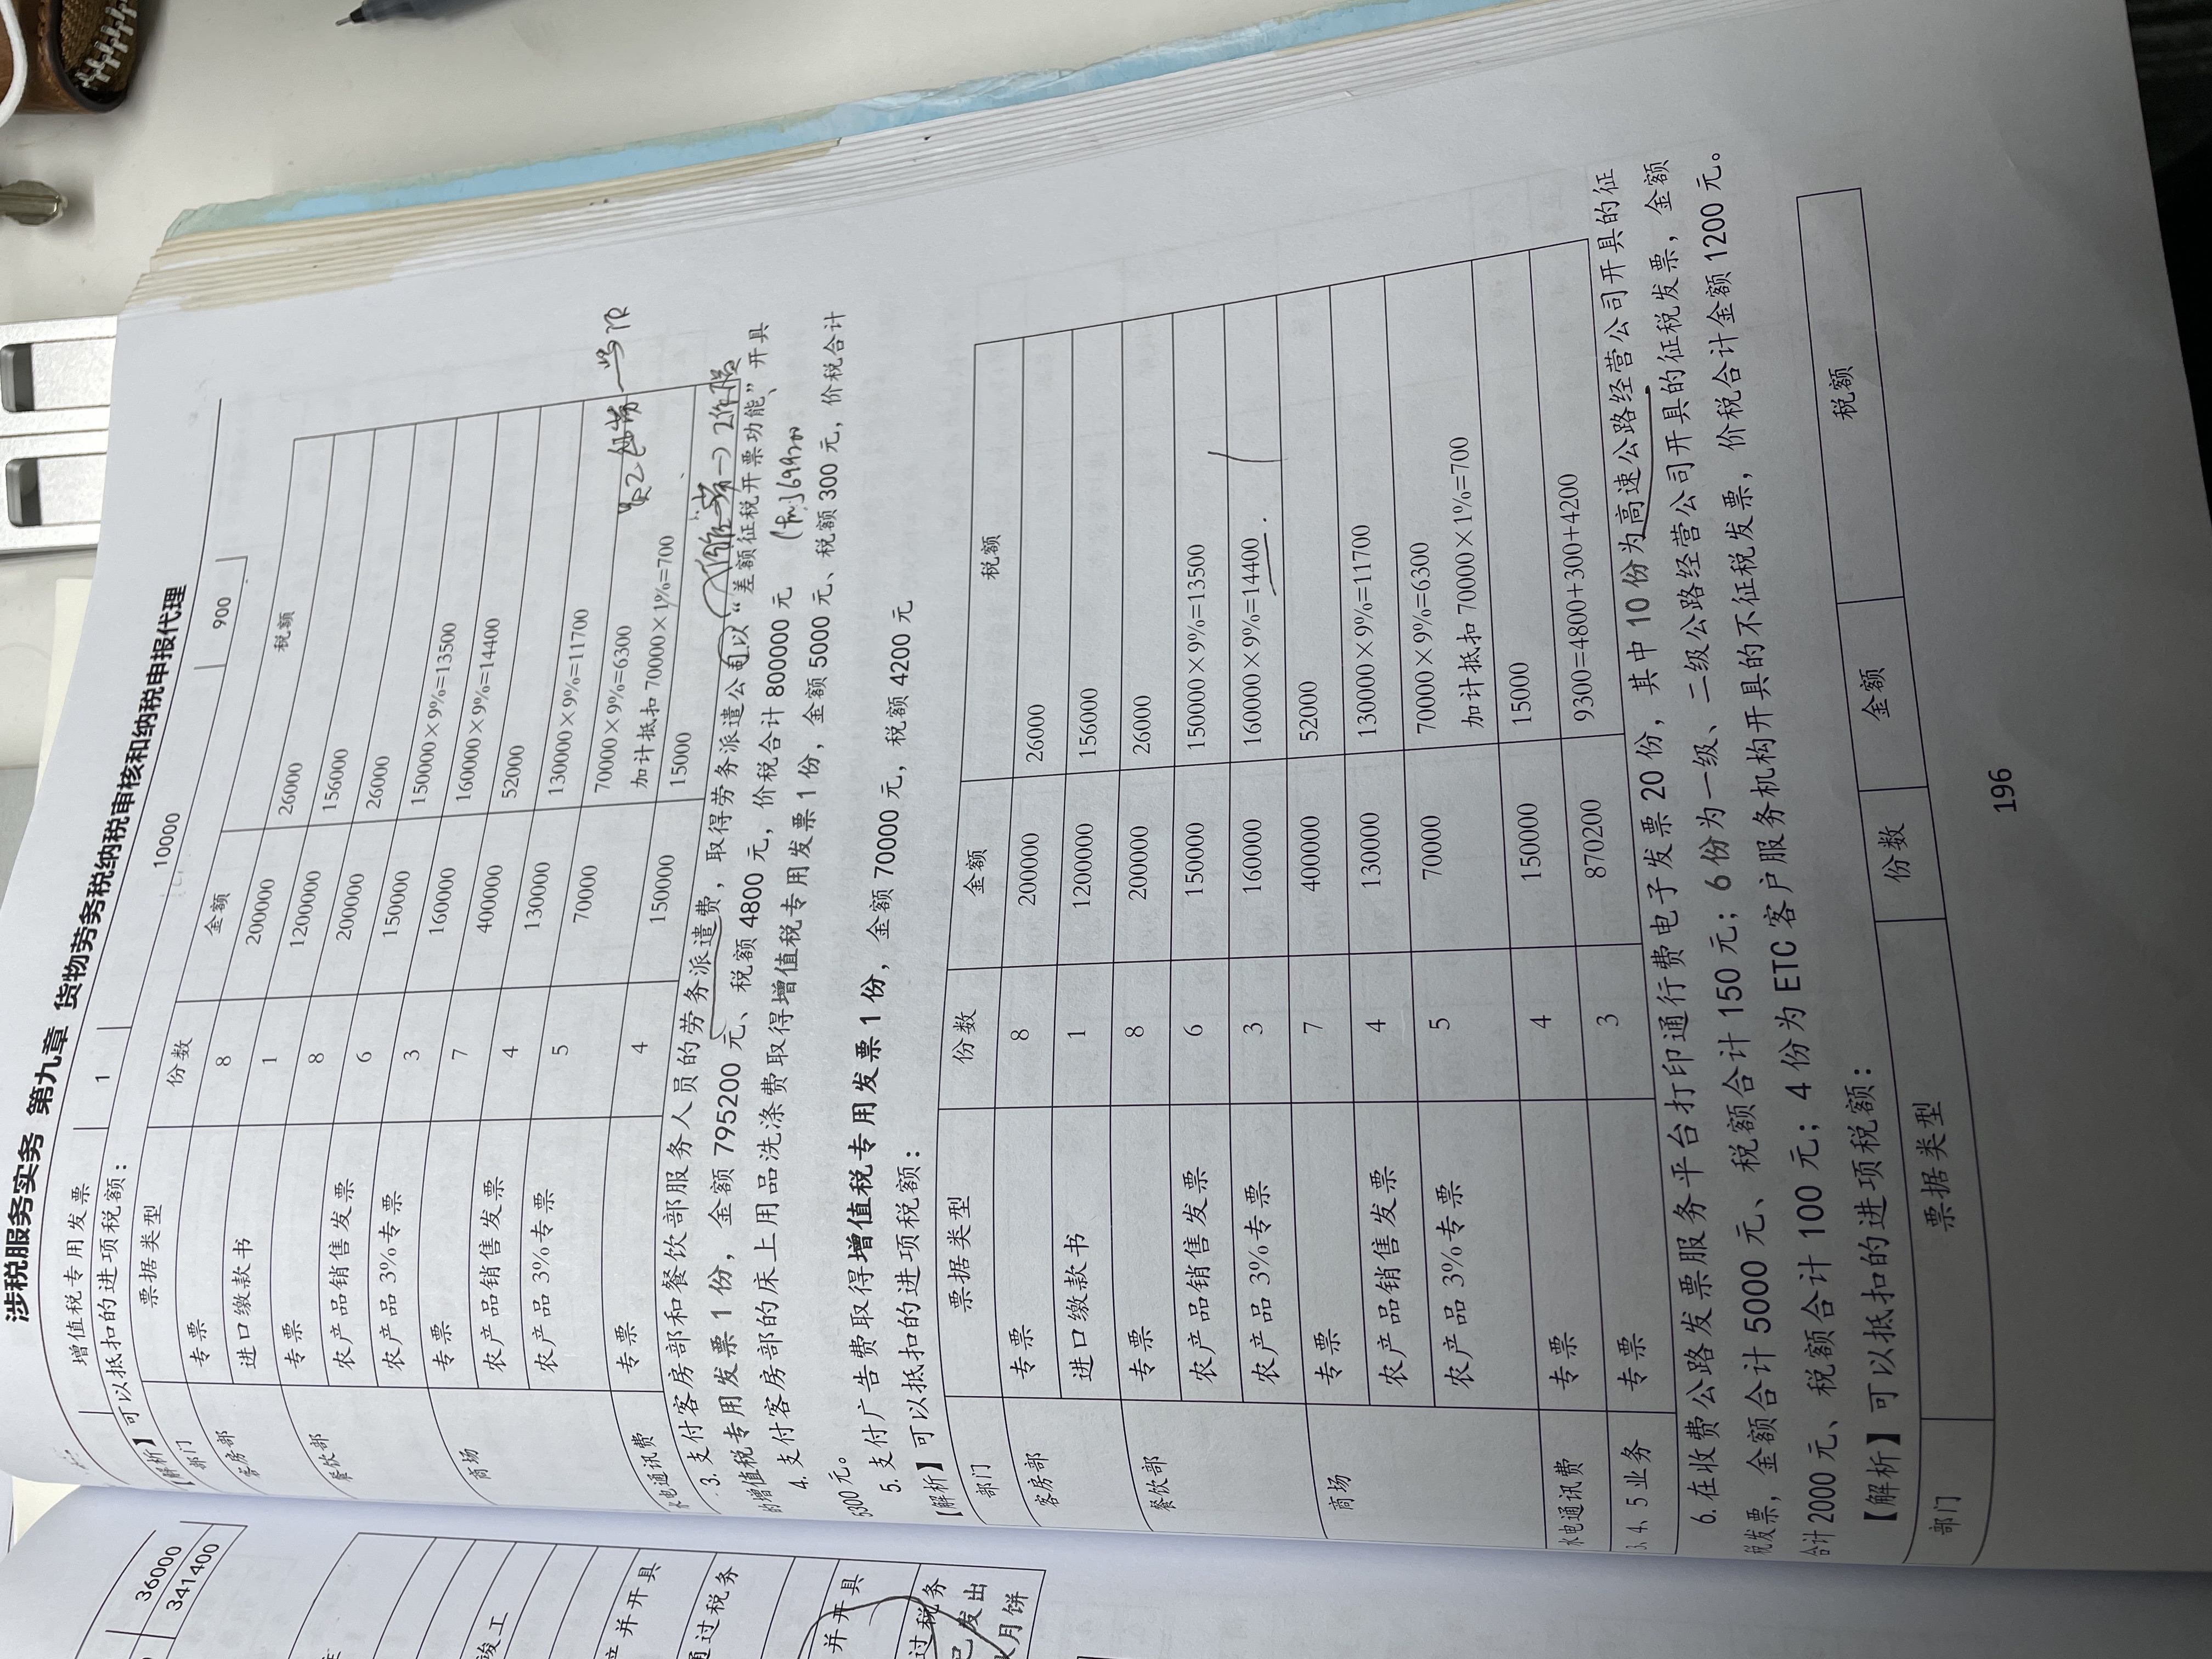 涉税服务实务 第九章 货物劳务税纳税审核和纳税申报代理
增值税专用发票 1 10000 900
【解析】可以抵扣的进项税额：
部门 票据类型 份数 金额 税额
客房部 专票 8 200000 26000
进口缴款书 1 1200000 156000
餐饮部 专票 8 200000 26000
农产品销售发票 6 150000 150000×9%=13500
农产品 3%专票 3 160000 160000×9%=14400
商场 专票 7 400000 52000
农产品销售发票 4 130000 130000×9%=11700
农产品 3%专票 5 70000 70000×9%=6300
加计抵扣 70000×1%=700
水电通讯费 专票 4 150000 15000
3. 支付客房部和餐饮部服务人员的劳务派遣费，取得劳务派遣公司以“差额征税开票功能”开具
的增值税专用发票 1 份，金额 795200 元、税额 4800 元，价税合计 800000 元
4. 支付客房部的床上用品洗涤费取得增值税专用发票 1 份，金额 5000 元、税额 300 元，价税合计
5300 元。
5. 支付广告费取得增值税专用发票 1 份，金额 70000 元，税额 4200 元
【解析】可以抵扣的进项税额：
部门 票据类型 份数 金额 税额
客房部 专票 8 200000 26000
进口缴款书 1 1200000 156000
餐饮部 专票 8 200000 26000
农产品销售发票 6 150000 150000×9%=13500
农产品 3%专票 3 160000 160000×9%=14400
商场 专票 7 400000 52000
农产品销售发票 4 130000 130000×9%=11700
农产品 3%专票 5 70000 70000×9%=6300
加计抵扣 70000×1%=700
水电通讯费 专票 4 150000 15000
3、4、5业务 专票 3 870200 9300=4800+300+4200
6. 在收费公路发票服务平台打印通行费电子发票 20 份，其中 10 份为高速公路经营公司开具的征
税发票，金额合计 5000 元、税额合计 150 元；6 份为一级、二级公路经营公司开具的征税发票，金额
合计 2000 元、税额合计 100 元；4 份为 ETC 客户服务机构开具的不征税发票，价税合计金额 1200 元。
【解析】可以抵扣的进项税额：
部门 票据类型 份数 金额 税额
196
36000
341400
竣工
并开具
通过税务
并开具
过税务
发出
月饼